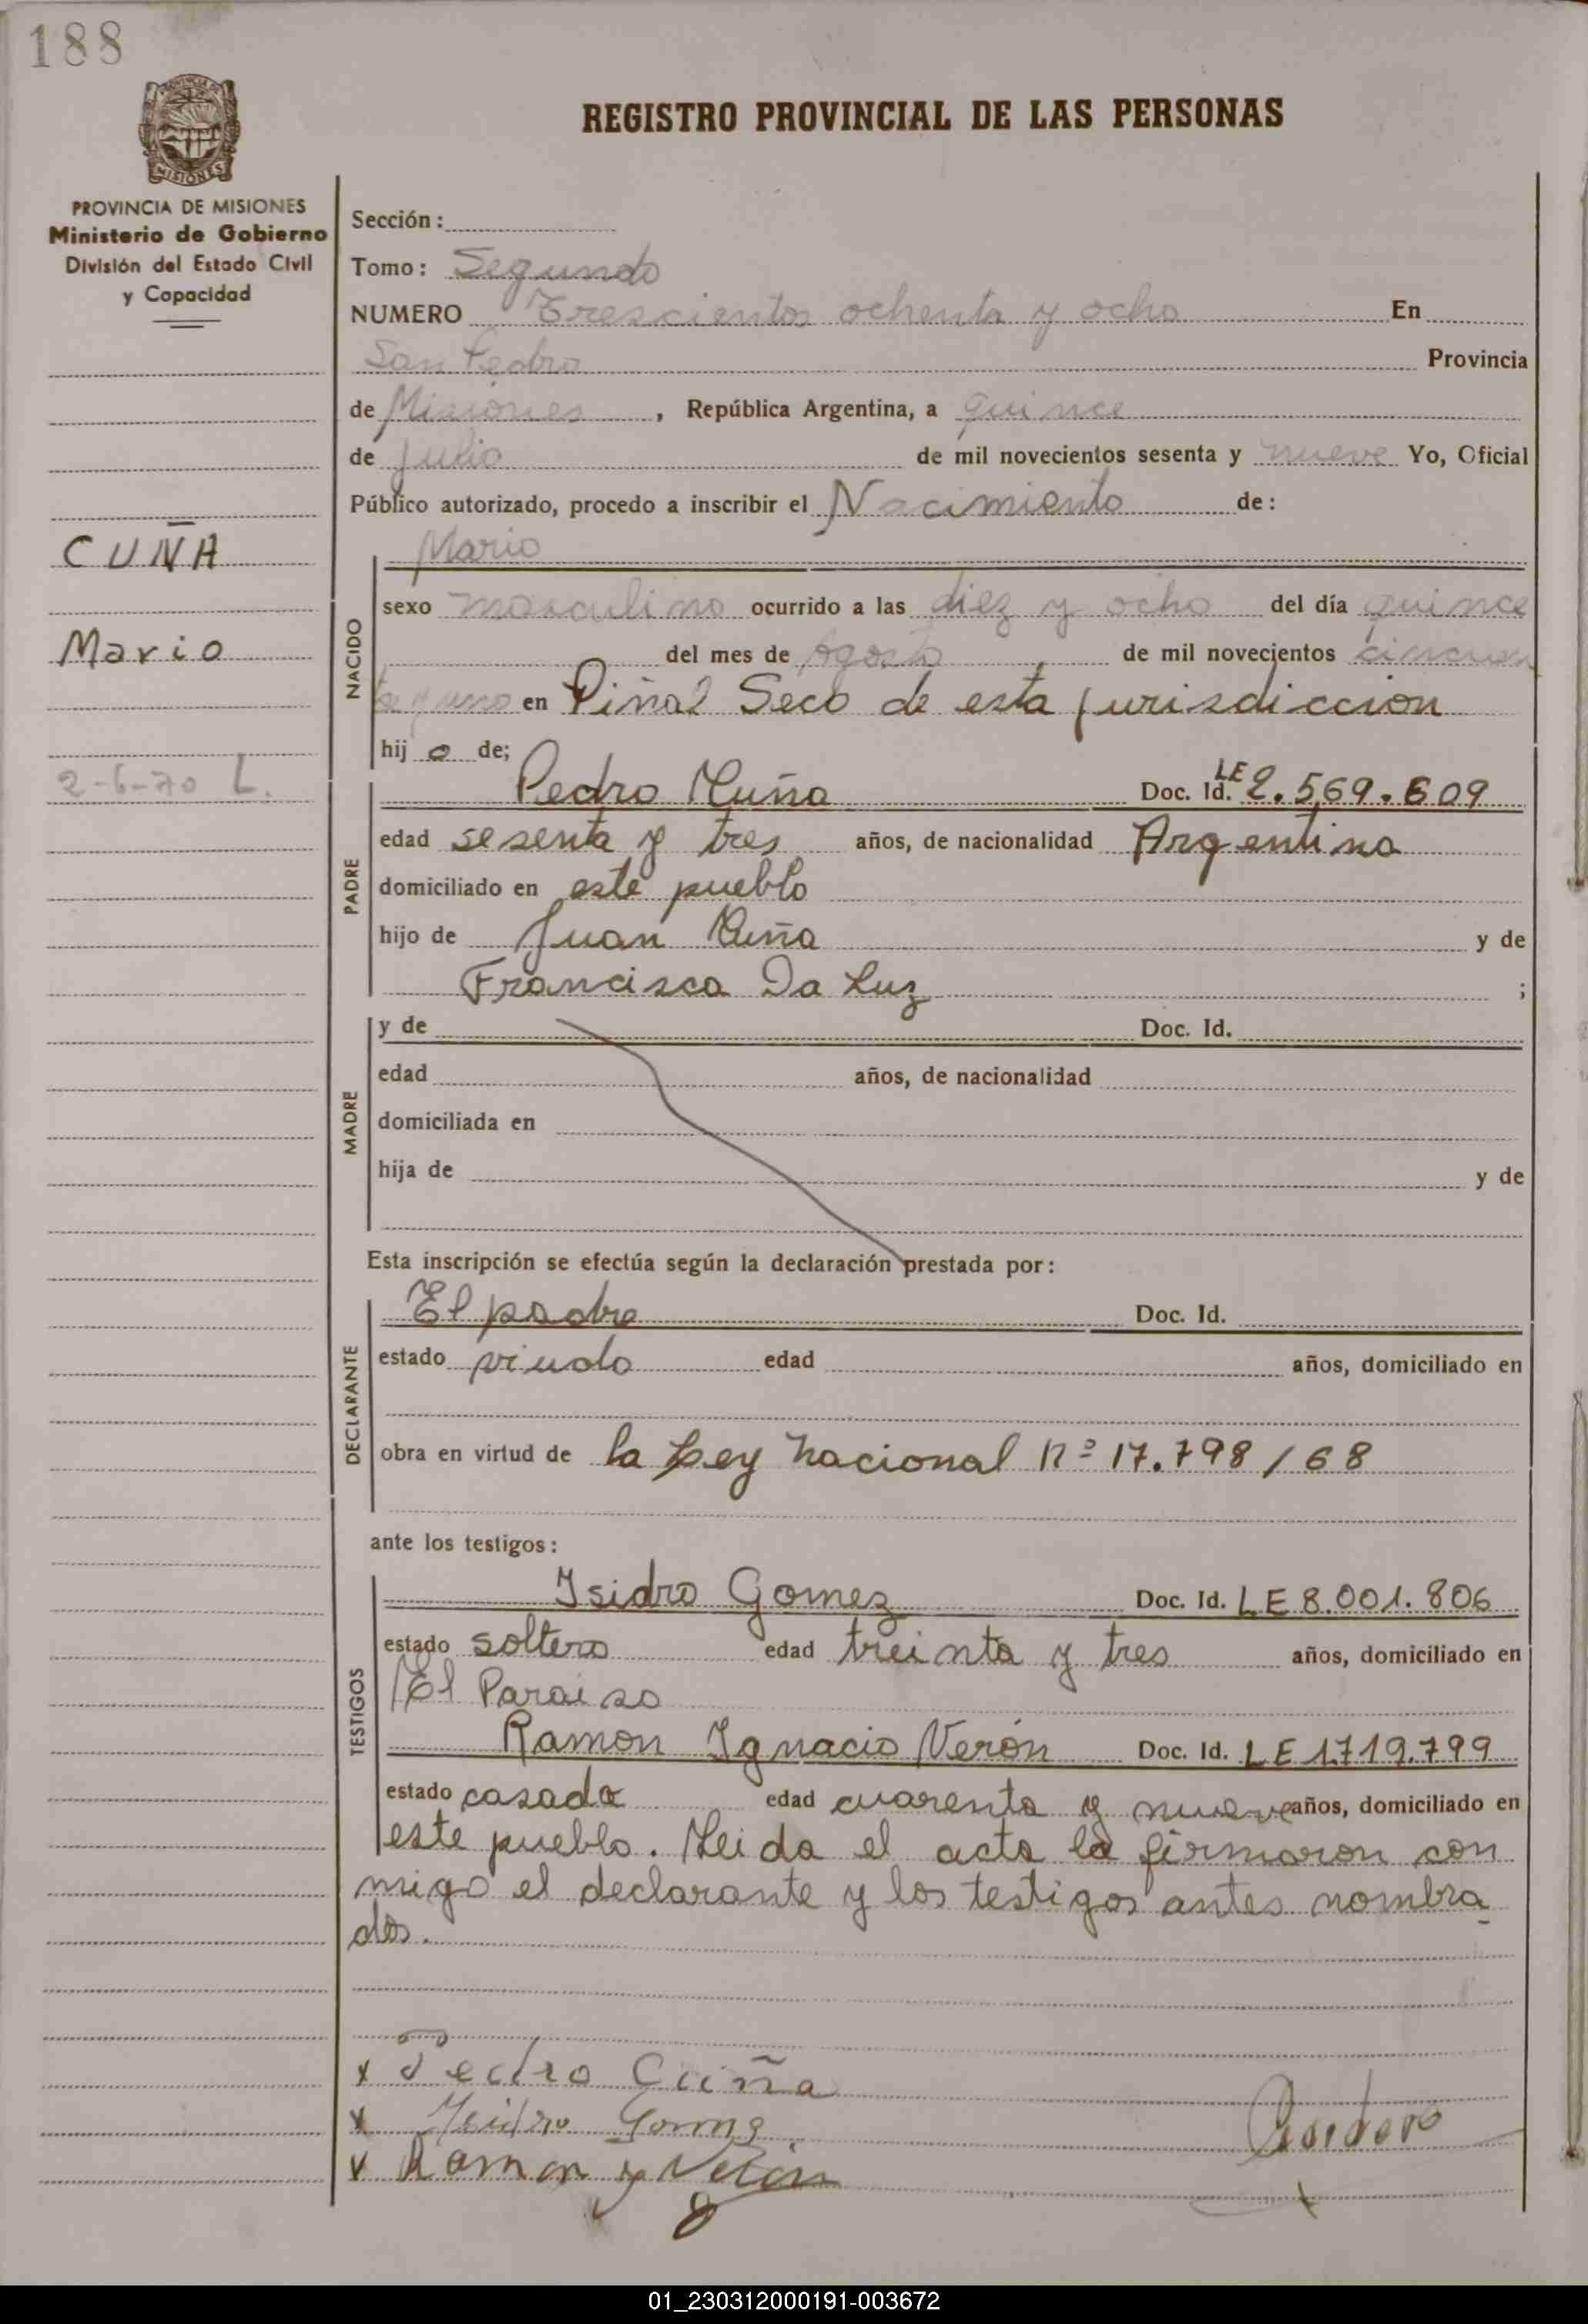 188
PROVINCIA DE MISIONES
Ministerio de Gobierno
División del Estado Civil
y Capacidad
CUÑA
Mario
2-6-70 L.
REGISTRO PROVINCIAL DE LAS PERSONAS
Sección:
Tomo: Segundo
NUMERO Trescientos ochenta y ocho En
San Pedro Provincia
de Misiones, República Argentina, a quince
de julio de mil novecientos sesenta y nueve Yo, Oficial
Público autorizado, procedo a inscribir el Nacimiento de:
Mario
NACIDO
sexo masculino ocurrido a las diez y ocho del día quince
del mes de Agosto de mil novecientos cincuen
ta y uno en Piñal Seco de esta jurisdiccion
hijo de;
PADRE
Pedro Cuña Doc. Id. LE 2.569.609
edad sesenta y tres años, de nacionalidad Argentina
domiciliado en este pueblo
hijo de Juan Cuña y de
Francisca Da Luz ;
MADRE
y de Doc. Id.
edad años, de nacionalidad
domiciliada en
hija de y de
Esta inscripción se efectúa según la declaración prestada por:
DECLARANTE
El padre Doc. Id.
estado viudo edad años, domiciliado en
obra en virtud de la Ley Nacional Nº 17.798/68
ante los testigos:
TESTIGOS
Isidro Gomez Doc. Id. LE 8.001.806
estado soltero edad treinta y tres años, domiciliado en
El Paraiso
Ramon Ignacio Verón Doc. Id. LE 1.719.799
estado casado edad cuarenta y nueve años, domiciliado en
este pueblo. Leida el acta la firmaron con
migo el declarante y los testigos antes nombra
dos.
x Pedro Cuña
x Isidro Gomez
x Ramon y Verón
01_230312000191-003672